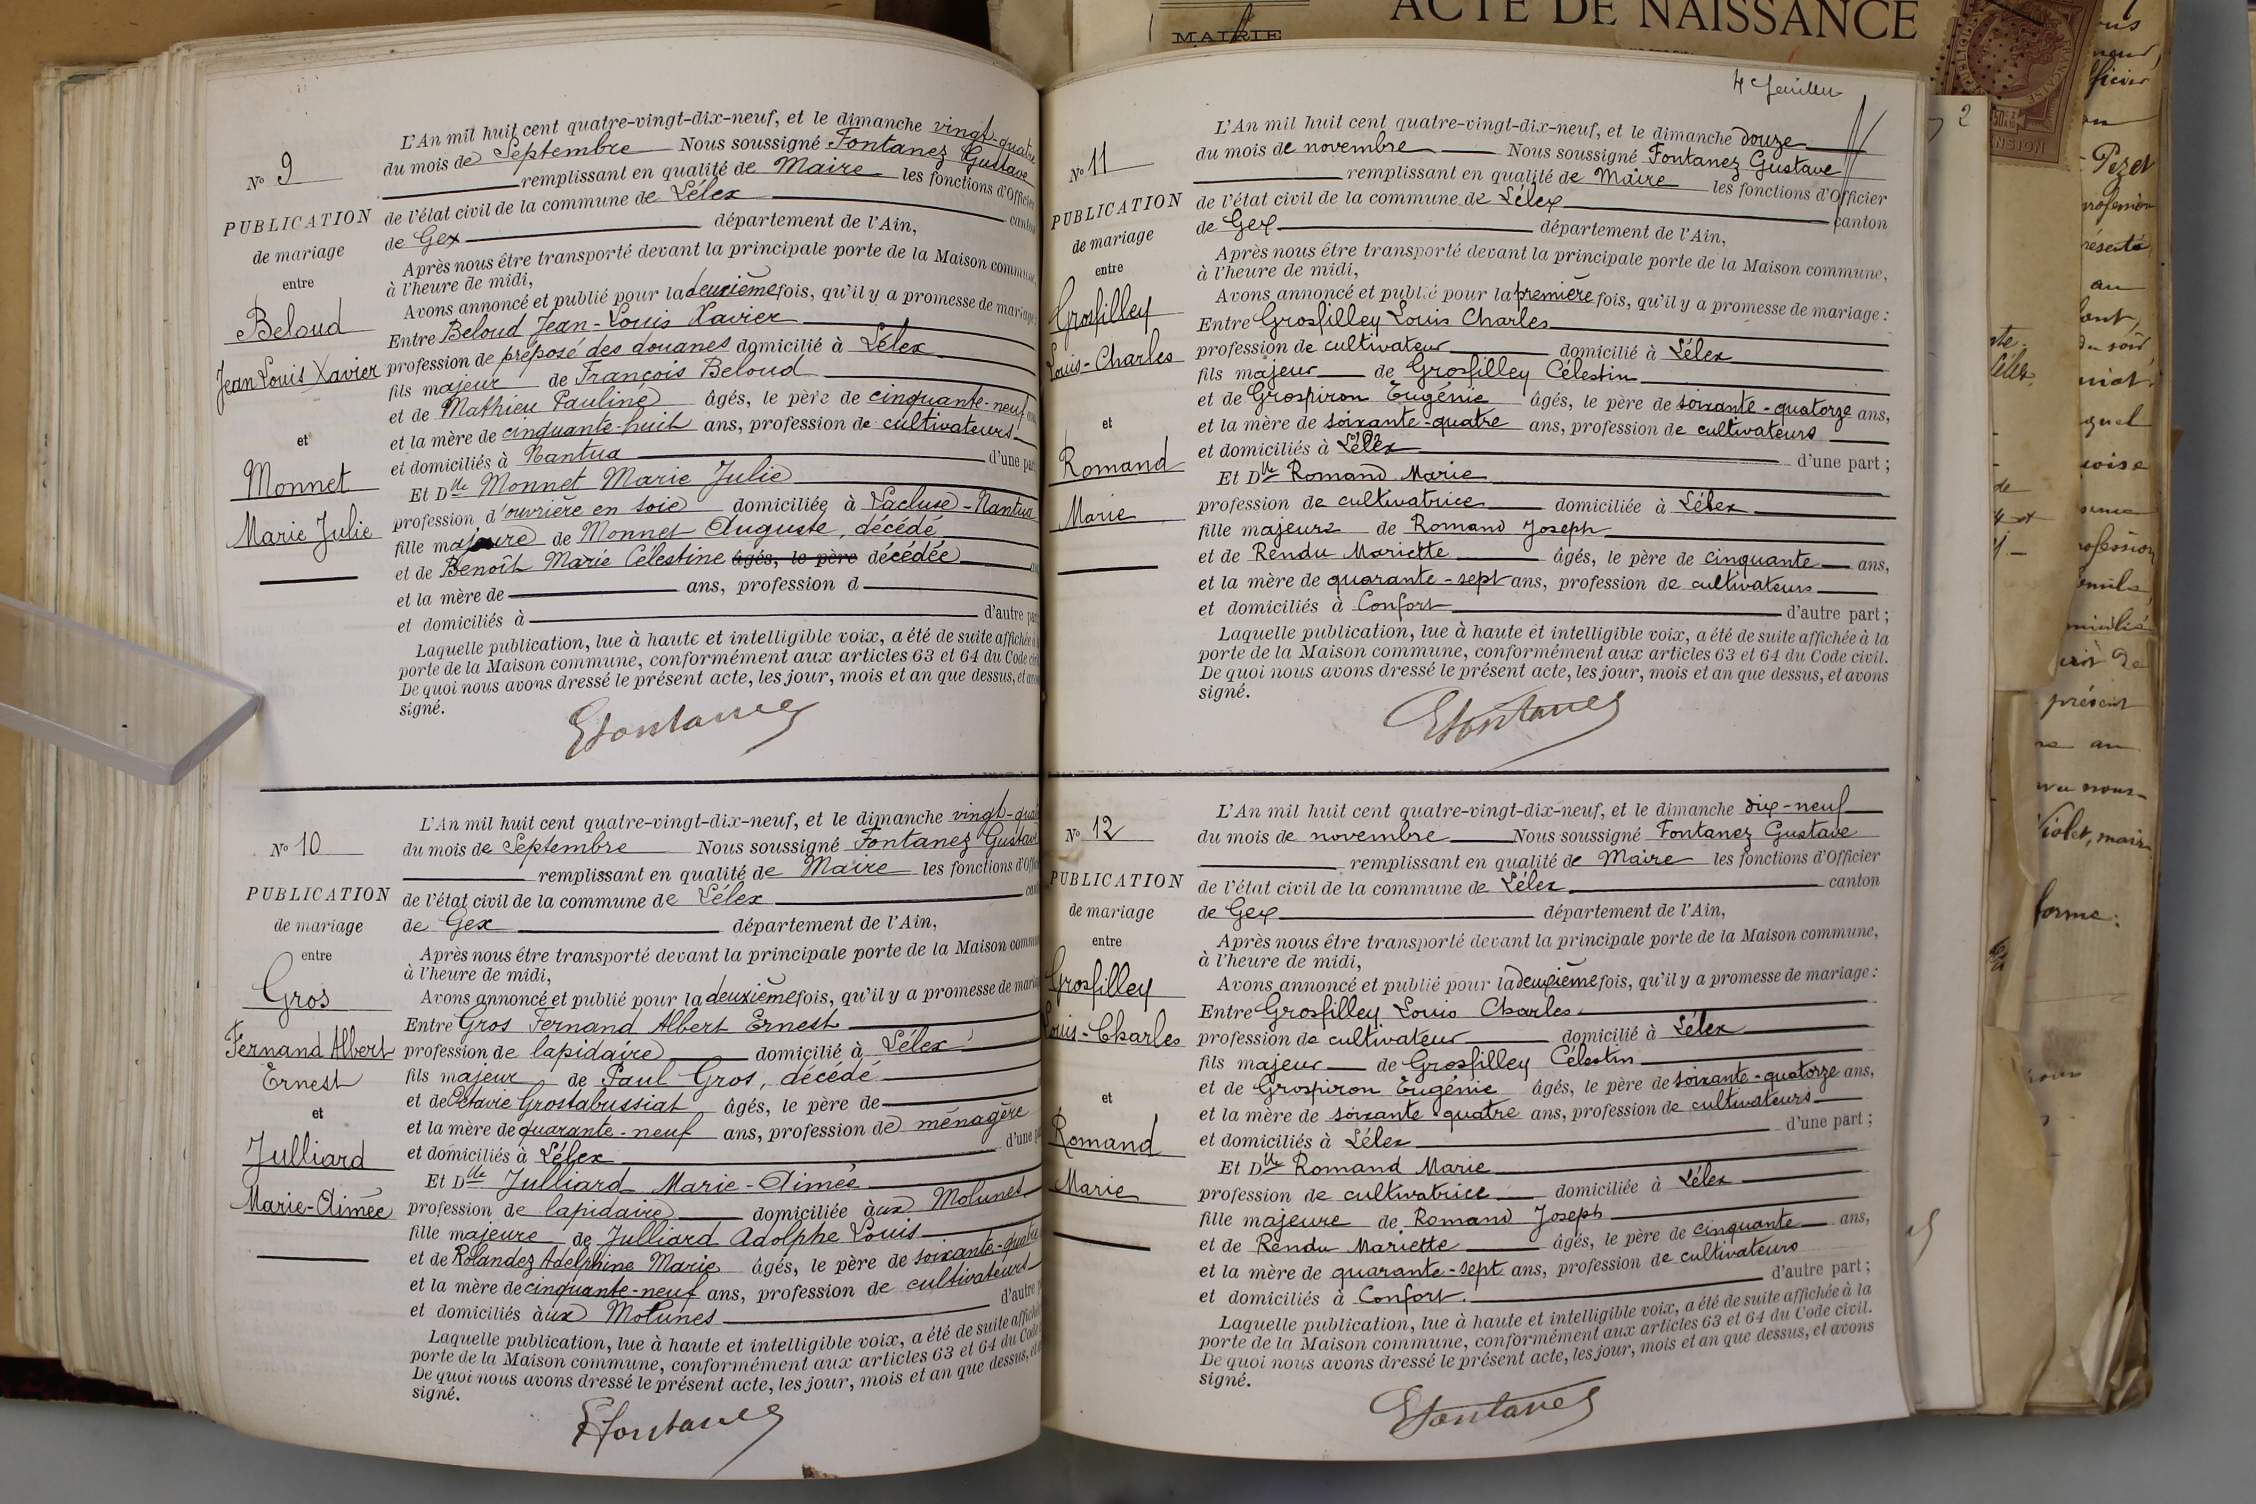 ACTE DE NAISSANCE
MAIRIE
N° 9
PUBLICATION
de mariage
entre
Beloud
Jean Louis Xavier
et
Monnet
Marie Julie
L'An mil huit cent quatre-vingt-dix-neuf, et le dimanche vingt-quatre
du mois de Septembre Nous soussigné Fontanez Gustave
remplissant en qualité de Maire les fonctions d'Officier
de l'état civil de la commune de Lélex canton
de Gex département de l'Ain,
Après nous être transporté devant la principale porte de la Maison commune,
à l'heure de midi,
Avons annoncé et publié pour la deuxième fois, qu'il y a promesse de mariage:
Entre Beloud Jean-Louis Xavier
profession de préposé des douanes domicilié à Lélex
fils majeur de François Beloud
et de Mathieu Pauline âgés, le père de cinquante-neuf ans
et la mère de cinquante-huit ans, profession de cultivateurs
et domiciliés à Nantua d'une part
Et Dlle Monnet Marie Julie
profession d'ouvrière en soie domiciliée à Lacluse-Nantua
fille majeure de Monnet Auguste, décédé
et de Benoît Marie Célestine âgés, le père décédée
et la mère de ans, profession d
et domiciliés à d'autre part
Laquelle publication, lue à haute et intelligible voix, a été de suite affichée à la
porte de la Maison commune, conformément aux articles 63 et 64 du Code civil
De quoi nous avons dressé le présent acte, les jour, mois et an que dessus, et avons
signé.
GFontanez
N° 10
PUBLICATION
de mariage
entre
Gros
Fernand Albert
Ernest
et
Julliard
Marie-Aimée
L'An mil huit cent quatre-vingt-dix-neuf, et le dimanche vingt-quatre
du mois de Septembre Nous soussigné Fontanez Gustave
remplissant en qualité de Maire les fonctions d'Officier
de l'état civil de la commune de Lélex canton
de Gex département de l'Ain,
Après nous être transporté devant la principale porte de la Maison commune
à l'heure de midi,
Avons annoncé et publié pour la deuxième fois, qu'il y a promesse de mariage
Entre Gros Fernand Albert Ernest
profession de lapidaire domicilié à Lélex
fils majeur de Paul Gros, décédé
et de Octavie Grostabussiat âgés, le père de
et la mère de quarante-neuf ans, profession de ménagère
et domiciliés à Lélex d'une part
Et Dlle Julliard Marie-Aimée
profession de lapidaire domiciliée àux Molunes
fille majeure de Julliard Adolphe Louis
et de Rolandez Adelphine Marie âgés, le père de soixante-quatre
et la mère de cinquante-neuf ans, profession de cultivateurs
et domiciliés àux Molunes d'autre part
Laquelle publication, lue à haute et intelligible voix, a été de suite affichée
porte de la Maison commune, conformément aux articles 63 et 64 du Code
De quoi nous avons dressé le présent acte, les jour, mois et an que dessus, et
signé.
GFontanez
4e feuillet
N° 11
PUBLICATION
de mariage
entre
Grosfilley
Louis-Charles
et
Romand
Marie
L'An mil huit cent quatre-vingt-dix-neuf, et le dimanche douze
du mois de novembre Nous soussigné Fontanez Gustave
remplissant en qualité de Maire les fonctions d'Officier
de l'état civil de la commune de Lélex canton
de Gex département de l'Ain,
Après nous être transporté devant la principale porte de la Maison commune,
à l'heure de midi,
Avons annoncé et publié pour la première fois, qu'il y a promesse de mariage :
Entre Grosfilley Louis Charles
profession de cultivateur domicilié à Lélex
fils majeur de Grosfilley Célestin
et de Grospiron Eugénie âgés, le père de soixante-quatorze ans,
et la mère de soixante-quatre ans, profession de cultivateurs
et domiciliés à Lélex d'une part ;
Et Dlle Romand Marie
profession de cultivatrice domiciliée à Lélex
fille majeure de Romand Joseph
et de Rendu Mariette âgés, le père de cinquante ans,
et la mère de quarante-sept ans, profession de cultivateurs
et domiciliés à Confort d'autre part ;
Laquelle publication, lue à haute et intelligible voix, a été de suite affichée à la
porte de la Maison commune, conformément aux articles 63 et 64 du Code civil.
De quoi nous avons dressé le présent acte, les jour, mois et an que dessus, et avons
signé.
GFontanez
N° 12
PUBLICATION
de mariage
entre
Grosfilley
Louis-Charles
et
Romand
Marie
L'An mil huit cent quatre-vingt-dix-neuf, et le dimanche dix-neuf
du mois de novembre Nous soussigné Fontanez Gustave
remplissant en qualité de Maire les fonctions d'Officier
de l'état civil de la commune de Lélex canton
de Gex département de l'Ain,
Après nous être transporté devant la principale porte de la Maison commune,
à l'heure de midi,
Avons annoncé et publié pour la deuxième fois, qu'il y a promesse de mariage :
Entre Grosfilley Louis Charles
profession de cultivateur domicilié à Lélex
fils majeur de Grosfilley Célestin
et de Grospiron Eugénie âgés, le père de soixante-quatorze ans,
et la mère de soixante quatre ans, profession de cultivateurs
et domiciliés à Lélex d'une part ;
Et Dlle Romand Marie
profession de cultivatrice domiciliée à Lélex
fille majeure de Romand Joseph
et de Rendu Mariette âgés, le père de cinquante ans,
et la mère de quarante-sept ans, profession de cultivateurs
et domiciliés à Confort. d'autre part ;
Laquelle publication, lue à haute et intelligible voix, a été de suite affichée à la
porte de la Maison commune, conformément aux articles 63 et 64 du Code civil.
De quoi nous avons dressé le présent acte, les jour, mois et an que dessus, et avons
signé.
GFontanez
2
Pezet
profession
au
présent
Violet, maire
forme.